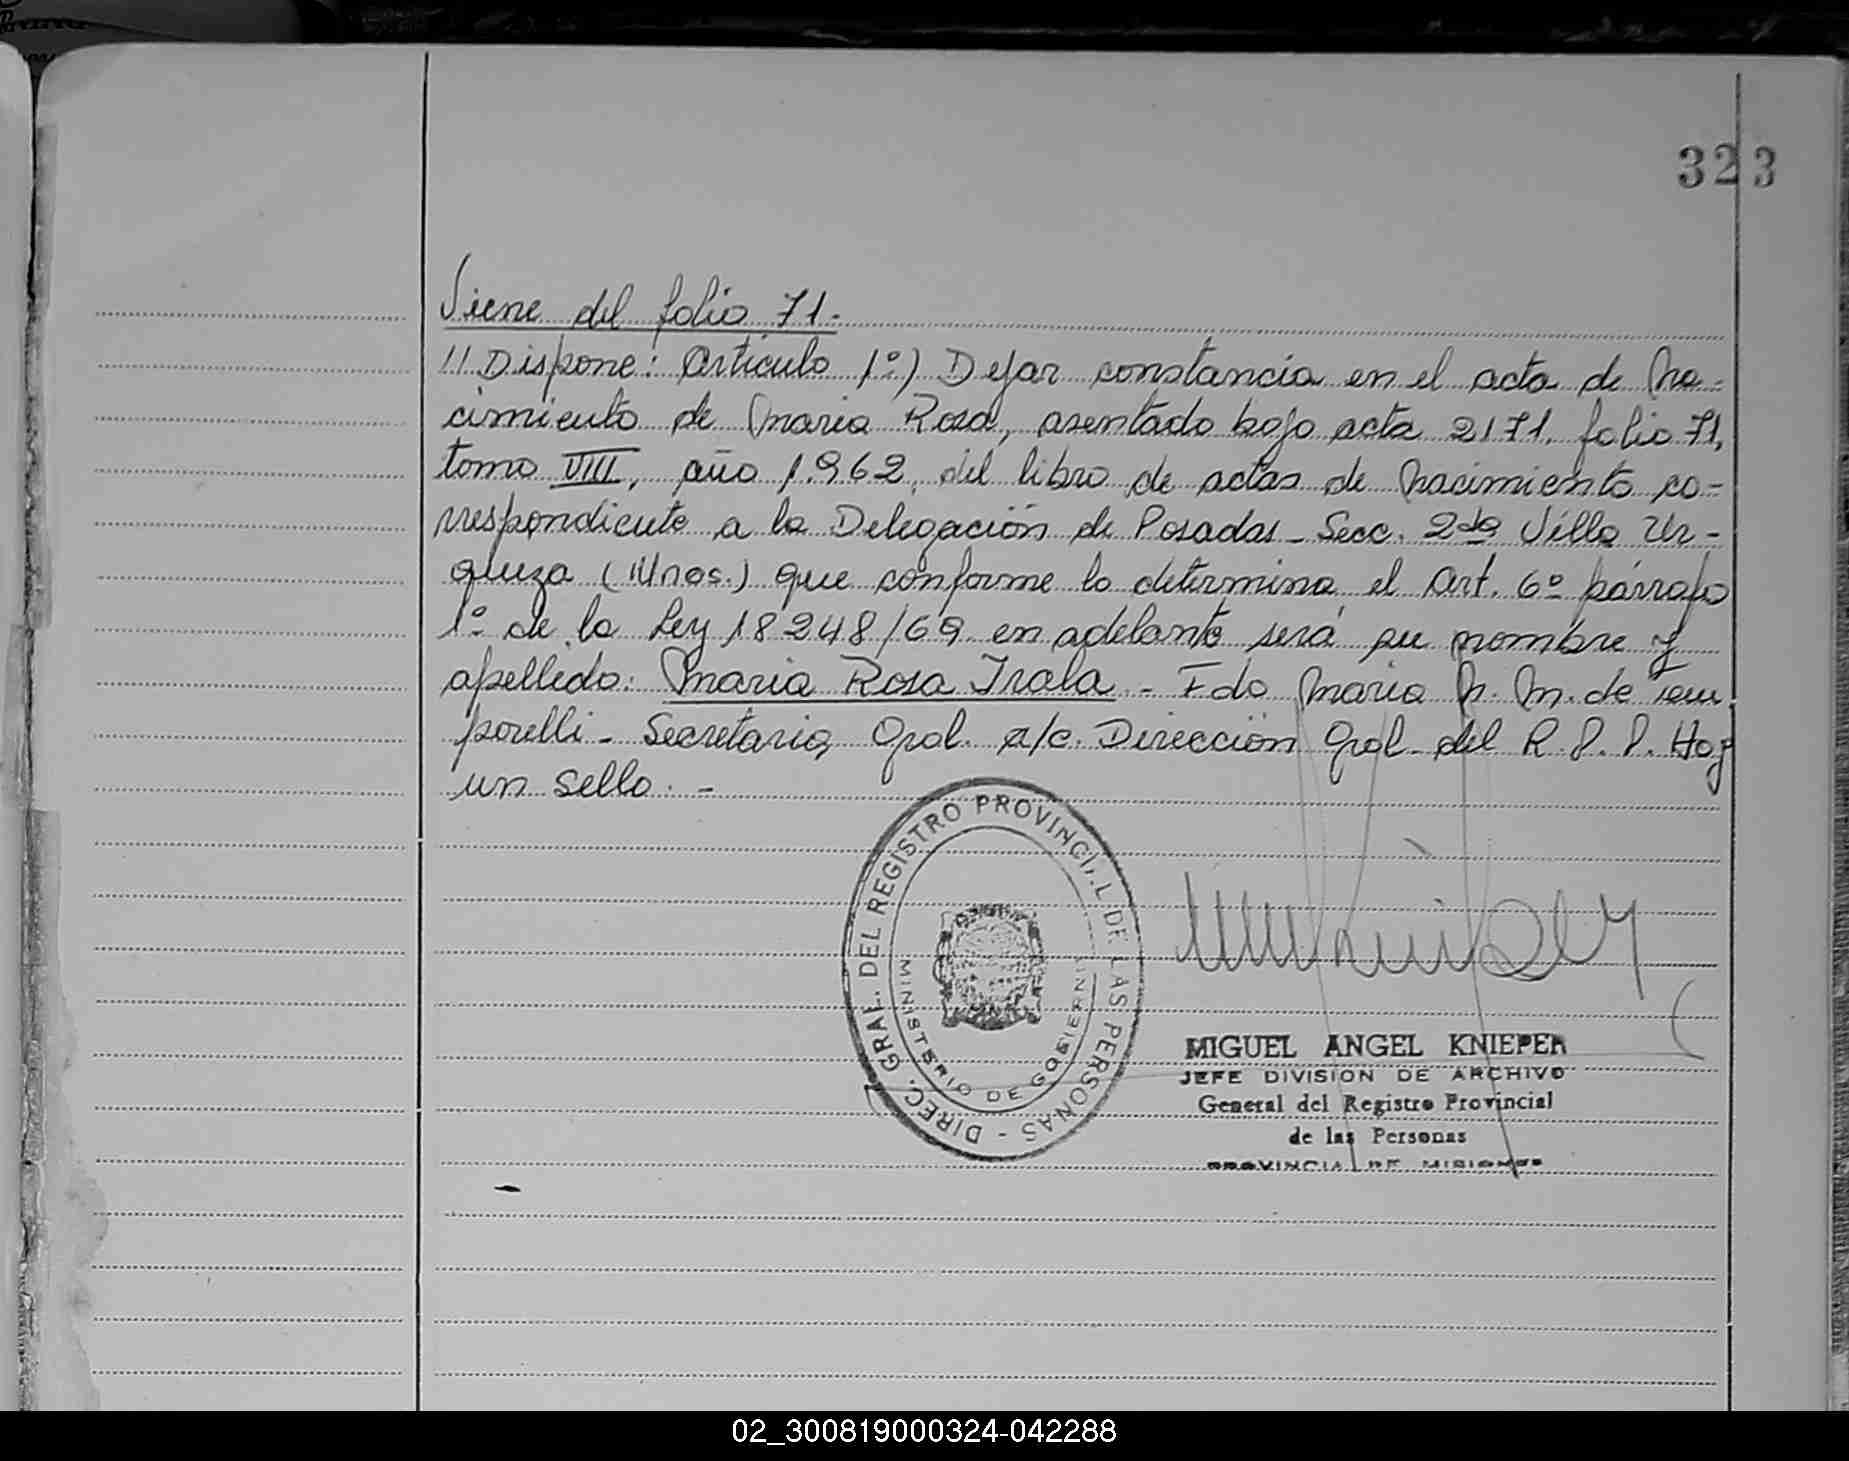 323
Viene del folio 71.-
// Dispone: Artículo 1º) Dejar constancia en el acta de Na-
cimiento de Maria Rosa, asentado bajo acta 2171, folio 71,
tomo VIII, año 1.962, del libro de actas de Nacimiento co-
rrespondiente a la Delegación de Posadas - Secc. 2da Villa Ur-
quiza (Mnes.) que conforme lo determina el Art. 6º párrafo
1º de la Ley 18248/69 en adelante será su nombre y
apellido: Maria Rosa Irala - Fdo Maria N. M. de Tem
porelli - Secretaria Gral. a/c. Dirección Gral. del R.P.P. Hay
un sello. -
DIREC. GRAL. DEL REGISTRO PROVINCIAL DE LAS PERSONAS -
MINISTERIO DE GOBIERNO
MIGUEL ANGEL KNIEPER
JEFE DIVISION DE ARCHIVO
General del Registro Provincial
de las Personas
PROVINCIA DE MISIONES
02_300819000324-042288